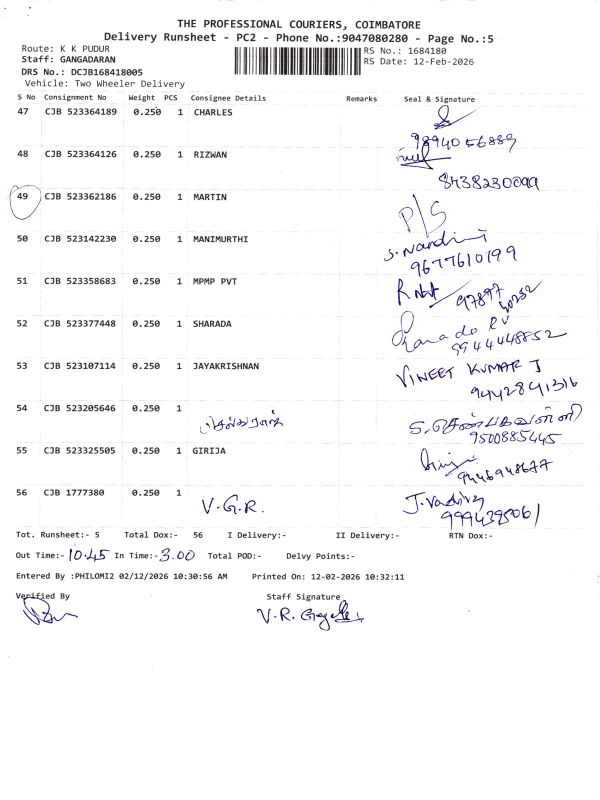 THE PROFESSIONAL COURIERS, COIMBATORE
Delivery Runsheet - PC2 - Phone No.:9047080280 - Page No.:5
Route: K K PUDUR
RS No.: 1684180
Staff: GANGADARAN
RS Date: 12-Feb-2026
DRS No.: DCJB168418005
Vehicle: Two Wheeler Delivery
S No Consignment No Weight PCS Consignee Details Remarks Seal & Signature
47 CJB 523364189 0.250 1 CHARLES
9894056889
48 CJB 523364126 0.250 1 RIZWAN
8438230099
49 CJB 523362186 0.250 1 MARTIN P/S
50 CJB 523142230 0.250 1 MANIMURTHI S. Nandini
9677610199
51 CJB 523358683 0.250 1 MPMP PVT
97897 40252
52 CJB 523377448 0.250 1 SHARADA
9944448852
53 CJB 523107114 0.250 1 JAYAKRISHNAN VINEET KUMAR J
9442841316
54 CJB 523205646 0.250 1 ச.செண்பகவள்ளி
9500885445
55 CJB 523325505 0.250 1 GIRIJA
9446948677
56 CJB 1777380 0.250 1 V.G.R. J.Vadivu
9994395061
Tot. Runsheet:- 5 Total Dox:- 56 I Delivery:- II Delivery:- RTN Dox:-
Out Time:- 10.45 In Time:- 3.00 Total POD:- Delvy Points:-
Entered By :PHILOMI2 02/12/2026 10:30:56 AM Printed On: 12-02-2026 10:32:11
Verified By Staff Signature
V.R.